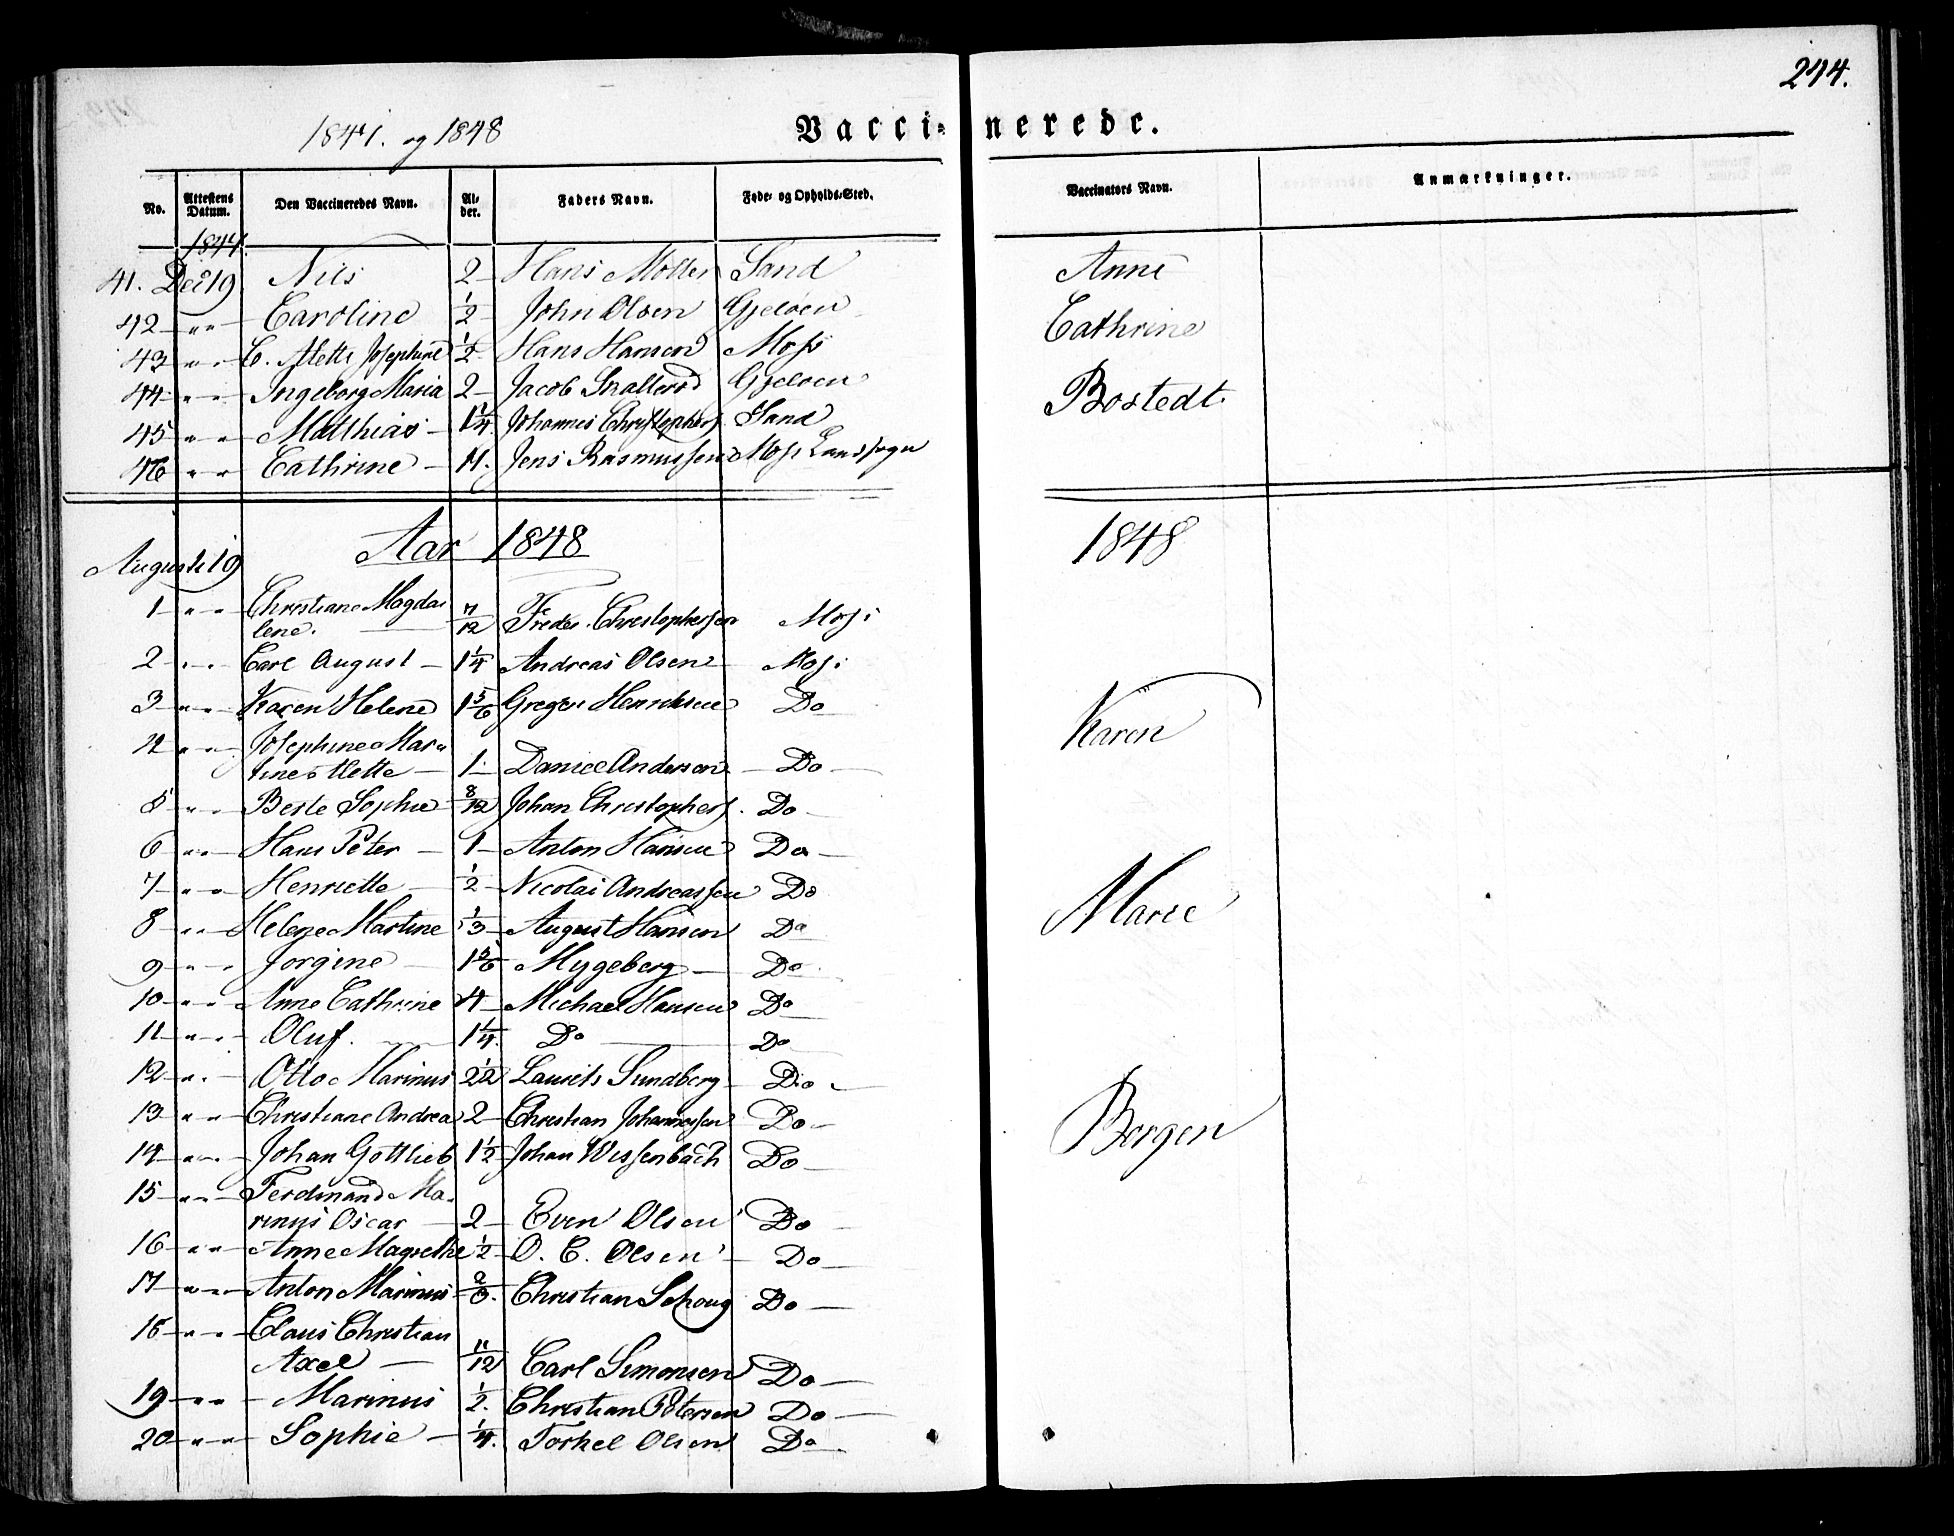 244.
1847. og 1848 Vacci-nerede.
No. Attestens Datum. Den Vaccineredes Navn. Al-der. Faders Navn. Føde- og Opholds-Sted. Vaccinators Navn. Anmærkninger.
1847.
41. Dec 19 Nils 2 Hans Moller Sand Anne
42 " " Caroline 1/2 John Olsen Gjeløen Cathrine
43 " " C. Mette Josephine 1/2 Hans Hansen Moss
44 " " Ingeborg Maria 2 Jacob Gjeløen Bostedt.
45 " " Matthias 1 1/4 Johannes Christophers. Sand
46 " " Cathrine 4. Jens Rasmussen Moss Landsogn
Aar 1848 1848
August 19
1 " " Christiane Magda-
lene. 7/12 Freder. Christophersen Moss
2 " " Carl August 1 1/4 Andreas Olsen Moss
3 " " Karen Helene 1 5/6 Gregers Henriksen Do Karen
4 " " Josephine Mar-
tine Mette 1 Daniel Anderson Do
5 " " Beate Sophie 8/12 Johan Christophers. Do
6 " " Hans Peter 1 Anton Hansen Do
7 " " Henriette 1/2 Nicolai Andreassen Do Marie
8 " " Helene Martine 1/3 August Hansen Do
9 " " Jorgine 1 5/6 Mygeberg Do
10 " " Anne Cathrine 4 Michael Hansen Do
11 " " Oluf. 1 1/4. Do Do
12 " " Otto Marinus 2 1/2 Laurits Sundberg Do
13 " " Christiane Andrea 2 Christian Johannessen Do Borgen
14 " " Johan Gottlieb 1 1/2 Johan Wissenbach Do
15 " " Ferdinand Ma-
rinus Oscar 2 Even Olsen Do
16 " " Anne Magrethe 1/2 O. C. Olsen Do
17 " " Anton Marinus 2/3. Christian Schoug Do
18 " " Claus Christian
Axel 11/12 Carl Simonsen Do
19 " " Marinus 1/2. Christian Petersen Do
20 " " Sophie 1/4. Torkel Olsen Do